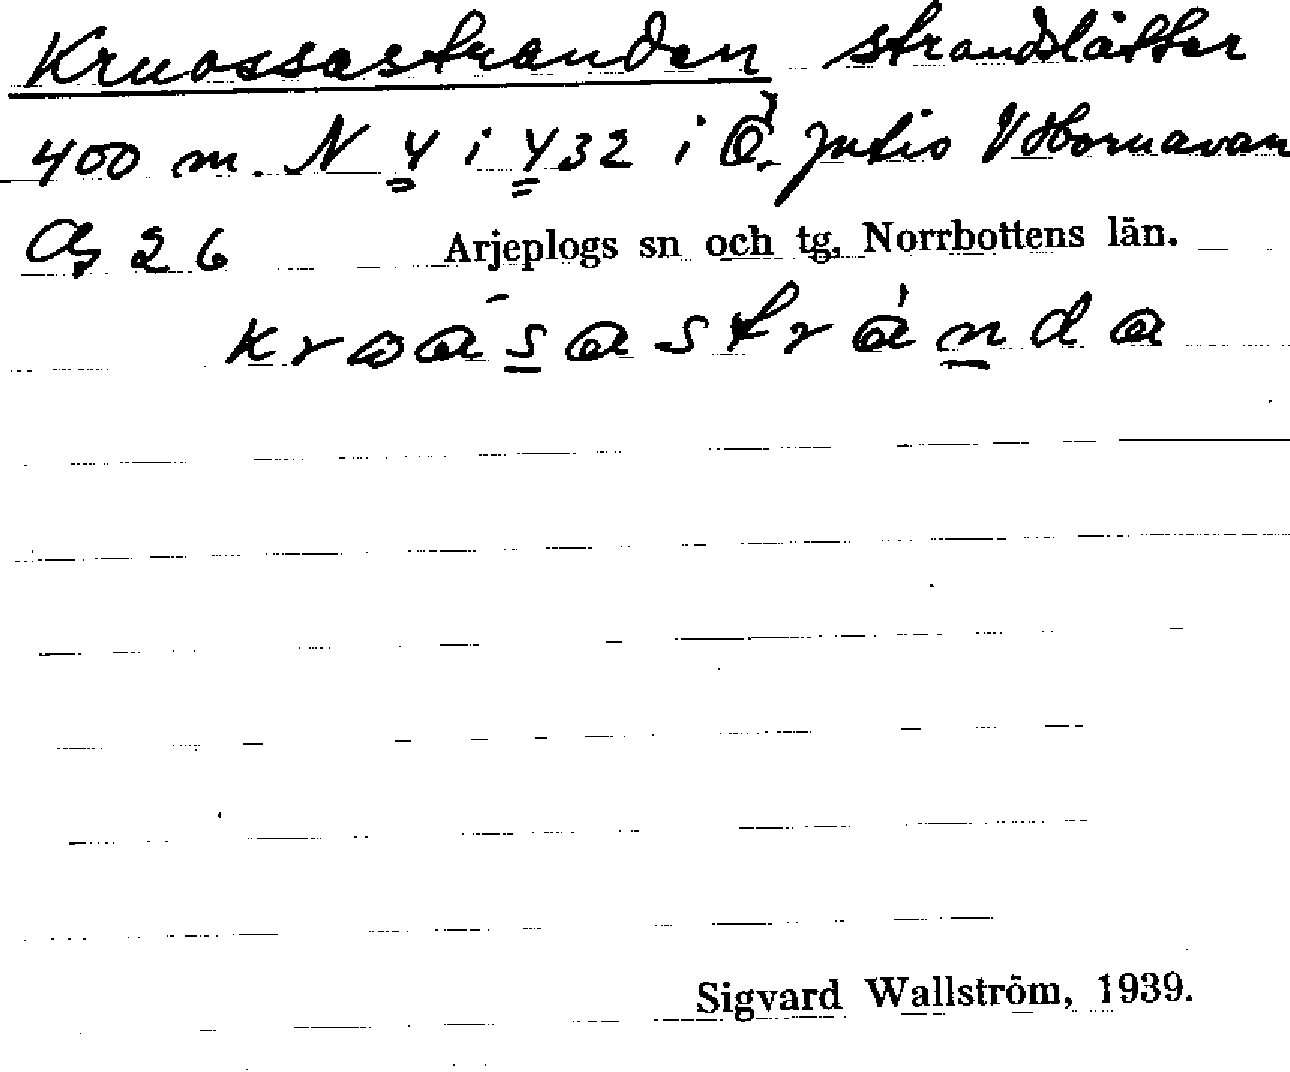 Kruossastranden strandslåtter
400 m. N 4 i 432 i Ö. Jutis V Hornavan
Bg 26 Arjeplogs sn och tg, Norrbottens län.
kroasastranda
Sigvard Wallström, 1939.